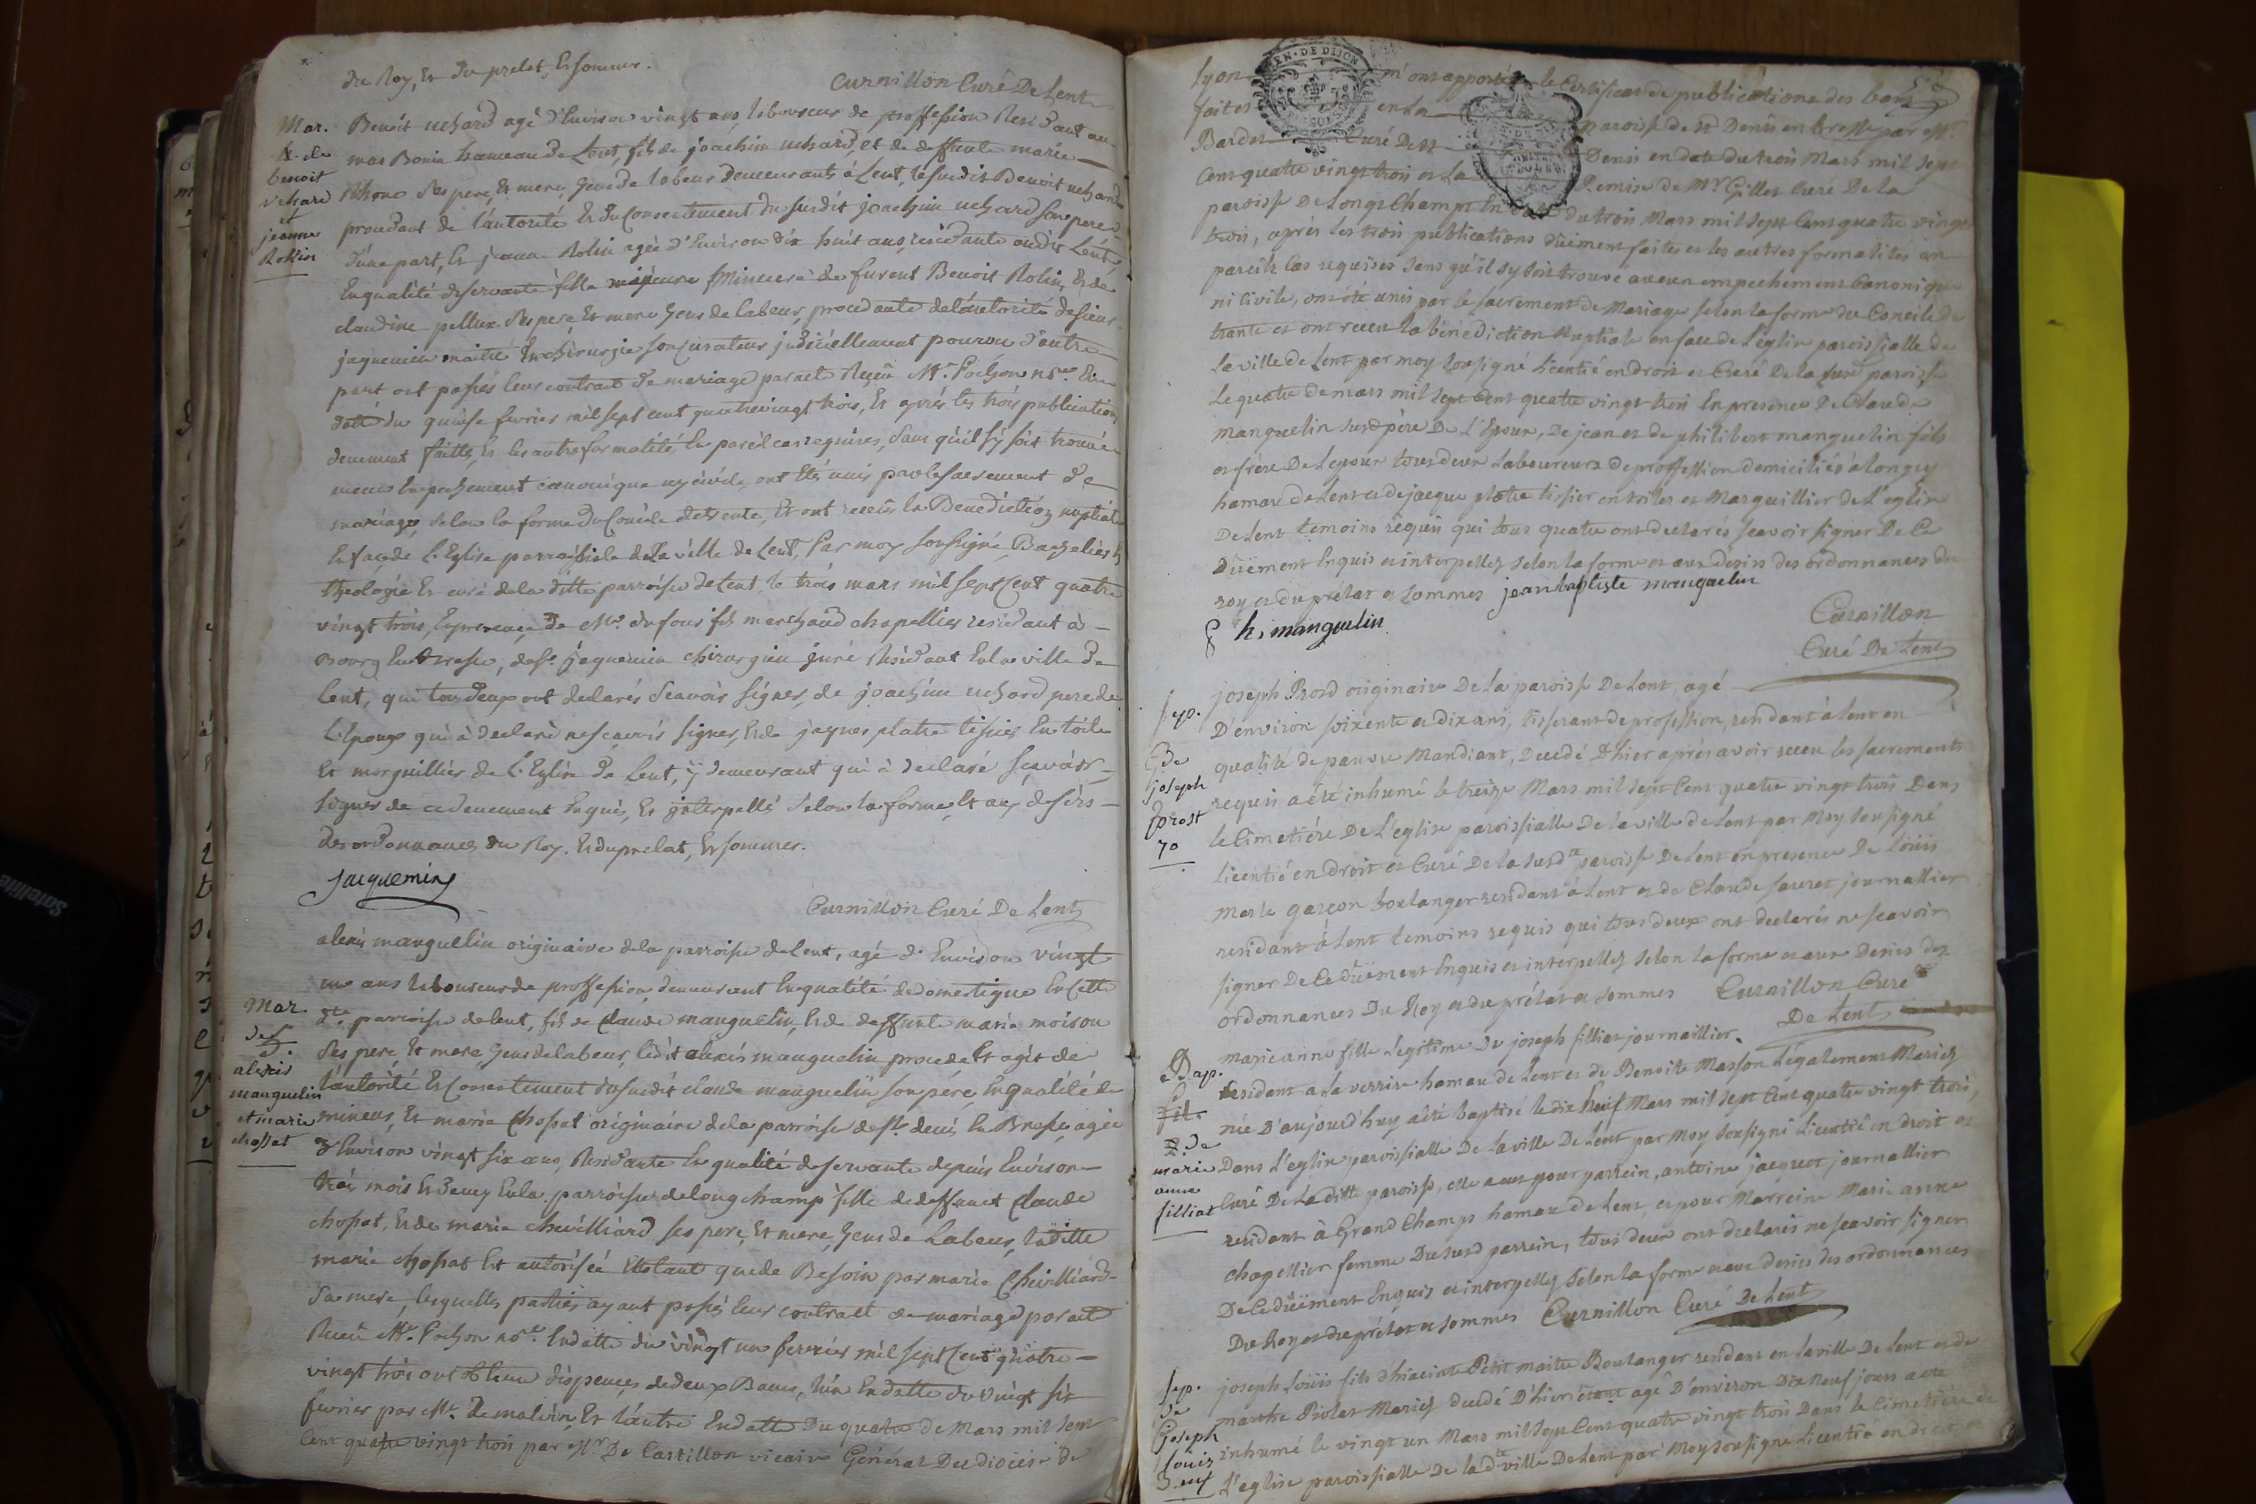 du Roy, Et du prelat, Et sommes.
Curnillon Curé De Lent
Mar.
de
benoit
uchard
et
jeanne
Rollin
Benoit uchard agé d'Environ vingt ans, laboureur de proffession Residant au
mas Bonin hameau de Lent, fils de joachim uchard, et de deffunte marie
Rhone ses pere, Et mere, gens de labeur demeurants à Lent, le susdit Benoit uchard
procedant de l'autorité Et du Consentement du susdit joachim uchard son pere
d'une part, Et jeanne Rolin agée d'Environ dix huit ans, residante audit Lent
En qualité de servante fille mineure de furent Benoit Rolin, Et de
claudine pellux ses pere, Et mere gens de labeur, procedante de l'autorité de sieur
jaquemin maitre En chirurgie son curateur judiciellement pourvu d'autre
part ont passés leur contrat de mariage par act Reçû Mr. Pochon nre. En
datte du quinse fevrier mil sept cent quatrevingt trois, Et après les trois publications
deuement faittes, Et les autres formalités En pareil cas requises, sans qu'il s'y soit trouvé
aucun Empechement canonique ny civile, ont Eté unis par le sacrement de
mariage, selon la forme du Concile de trente, Et ont reçeus la Benediction nuptiale
En face de L'Eglise parroissiale de la ville de Lent, Par moy soussigné Bachelier En
theologie Et curé de la ditte parroisse de Lent, le trois mars mil sept Cent quatre
vingt trois, En presence de Mr. dufour fils marchand chapellier residant à
Bourg En Bresse, de sr. jaquemin chirurgien juré Residant En la ville de
Lent, qui tous deux ont declarés Scavoir signer, de joachim uchard pere de
L'Epoux qui à declaré ne scavoir signer, Et de jaques platre tissier En toile
Et marguillier de L'Eglise de Lent, y demeurant qui à declaré sçavoir
signer de ce deuement Enquis, Et interpellé selon la forme, Et aux desirs
des ordonnances du Roy. Et du prelat, Et sommes.
jacquemin
Curnillon Curé De Lent
Mar.
de
alexis
manguelin
et marie
chossat
alexis manguelin originaire de la parroisse de Lent, agé d'Environ vingt
un ans laboureur de proffession, demeurant En qualité de domestique En cette
dte. parroisse de Lent, fils de Claude manguelin, Et de deffunte marie moison
ses pere, Et mere, gens de labeur, ledit alexis manguelin procede Et agit de
l'autorité Et Consentement du susdit claude manguelin son pére, En qualité de
mineur, Et marie Chossat originaire de la parroise de St. denis En Bresse, agée
d'Environ vingt six ans, Residante En qualité de servante depuis Environ
trois mois Et demy En la parroisse de longchamp fille de deffunct Claude
chossat, Et de marie chevilliard ses pere, Et mere, gens de Labeur, laditte
marie chossat Est autorisée Entant que de Besoin par marie Chevilliard
sa mere, lesquelles parties ayant passés leur contratt de mariage par act
Recû Mr. Pochon nre. En datte du vingt un fevrier mil sept Cent quatre
vingt trois ont obtenu dispences de deux Bancs, l'un En datte du vingt six
fevrier par Mr. De malvin, Et l'autre En datte Du quatre de Mars mil sept
Cent quatre vingt trois par Mr De Castillon vicaire Général Du diocèse de
Lyon m'ont apporté le Certificat de publications des bans
faites en la paroisse de St Denis en bresse par Mr.
Bardet Curé De St Denis en date du trois Mars mil sept
Cent quatre vingt trois et la Remise de Mr Gillet Curé De la
paroisse De Longs Champs En date du trois Mars mil sept Cent quatre vingt
trois, après les trois publications dûement faites et les autres formalités en
pareils cas requises sans qu'il s'y soit trouvé aucun empechement Canonique
ni Civile, ont été unis par le sacrement de Mariage selon la forme du Concile de
trante et ont receu la bénédiction Nuptiale en face de L'églize paroissialle de
la ville de Lent par moy sousigné Licentié en droit et Curé De la susd paroisse
Le quatre de mars mil sept Cent quatre vingt trois En presence De Claude
manguelin susd père De L'Epoux, De jean et de philibert manguelin fils
et frère De Lepoux tous deux Laboureurs de proffession domiciliés à longey
hamau de Lent et de jacque platre tissier en toiles et Marguillier de L'eglize
De Lent temoins requis qui tous quatre ont declarés scavoir signer De Ce
Dûement Enquis et interpellez selon la forme et aux désirs des ordonnances du
roy et du prélat et sommes jean baptiste manguelin
Ph. manguelin
Curnillon
Curé De Lent
sep.
De
joseph
prost
70
joseph Prost originaire De la paroisse De Lent, agé
D'environ soixente et dix ans, tisserant de profession, residant à lent en
qualité de pauvre Mandiant, Decedé D'hier aprés avoir receu les sacrements
requis a eté inhumé le treize Mars mil sept Cent quatre vingt trois Dans
le Cimetière De L'eglise paroissialle De la ville de Lent par Moy sousigné
Licentié en Droit et Curé De la susdte paroisse De Lent en presence De Loüis
Merle garçon boulanger residant à Lent et de Claude sauret journallier
residant à Lent temoins requis qui tous deux ont declarés ne scavoir
signer De Ce duëment Enquis et interpellez selon la forme et aux Desirs des
ordonnances Du Roy et du prélat et sommes Curnillon Curé
De Lent
Bap.
fil.
De
marie
anne
filliat
marie anne fille Legitime De joseph filliat journaillier
résident a la verrire hamau de Lent et de Benoite Masson Légalement Mariez
née D'aujourd'huy a été baptisé le dix Neuf Mars mil sept Cent quatre vingt trois,
Dans L'eglize paroissialle De la ville De Lent par Moy sousigné Licentié en droit et
Curé De La ditte paroisse, elle a eu pour parrein, antoine jacquet journallier
residant à Grand Champs hamau de Lent, et pour Marreine Marie anne
Chapellier femme Du susd parrein, tous deux ont declarés ne scavoir signer
De Ce duëment Enquis et interpellez selon la forme et aux desirs des ordonnances
Du Roy et du prélat et sommes Curnillon Curé De Lent
sep.
de
joseph
Louis
Petit
joseph Loüis fils d'hiacinte Petit maitre Boulanger residant en la ville De Lent et de
marthe Piolat Mariez decedé D'hier étant agé D'environ Dix Neuf jours a été
inhumé le vingt un Mars mil sept Cent quatre vingt trois Dans le Cimetière de
L'eglise paroissialle De la dte ville De Lent par Moy sousigné Licentié en droit et